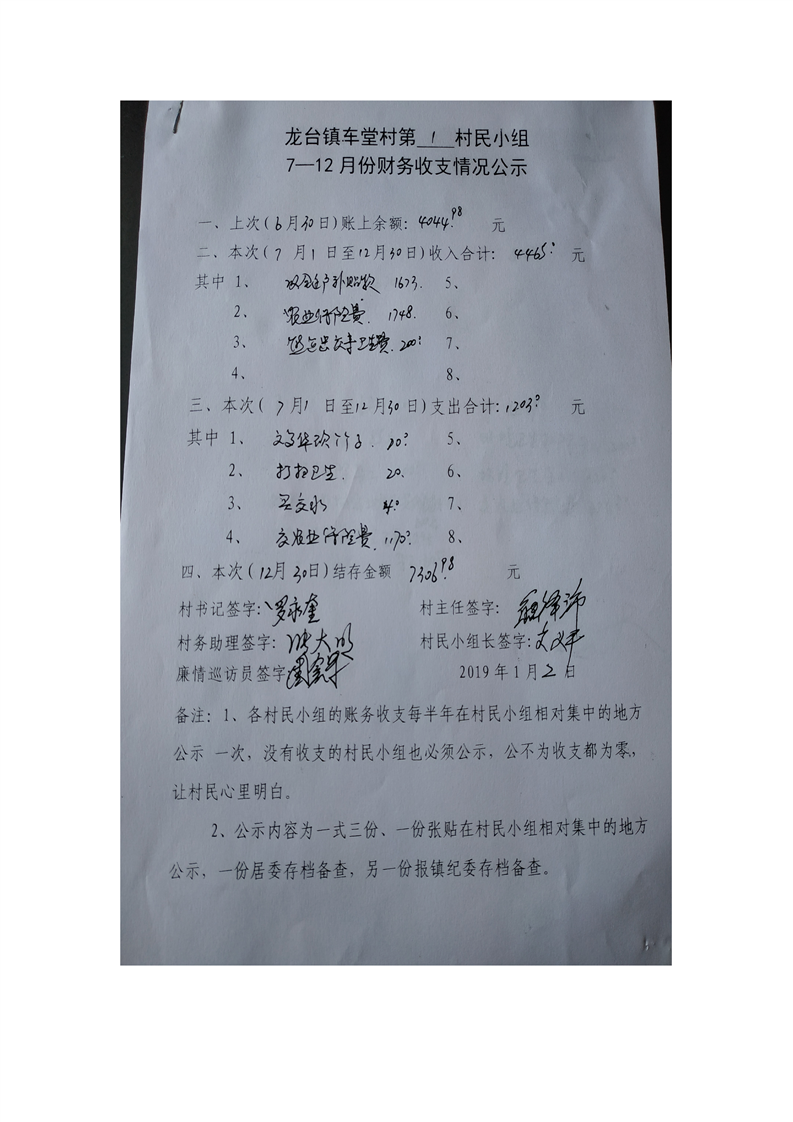 龙台镇车堂村第 1 村民小组
7—12月份财务收支情况公示
一、上次(6月30日)账上余额：4044.98 元
二、本次(7月1日至12月30日)收入合计：4465.0 元
其中 1、 1673. 5、
2、 农业保险费. 1748. 6、
3、 卫生费. 7、
4、 8、
三、本次(7月1日至12月30日)支出合计：1203.0 元
其中 1、 5、
2、 打扫卫生. 20. 6、
3、 7、
4、 交农业保险费. 1170.0 8、
四、本次(12月30日)结存金额 7306.98 元
村书记签字：罗永奎 村主任签字：
村务助理签字：张大明 村民小组长签字：
廉情巡访员签字
2019年1月2日
备注：1、各村民小组的账务收支每半年在村民小组相对集中的地方
公示 一次，没有收支的村民小组也必须公示，公不为收支都为零，
让村民心里明白。
2、公示内容为一式三份、一份张贴在村民小组相对集中的地方
公示，一份居委存档备查，另一份报镇纪委存档备查。